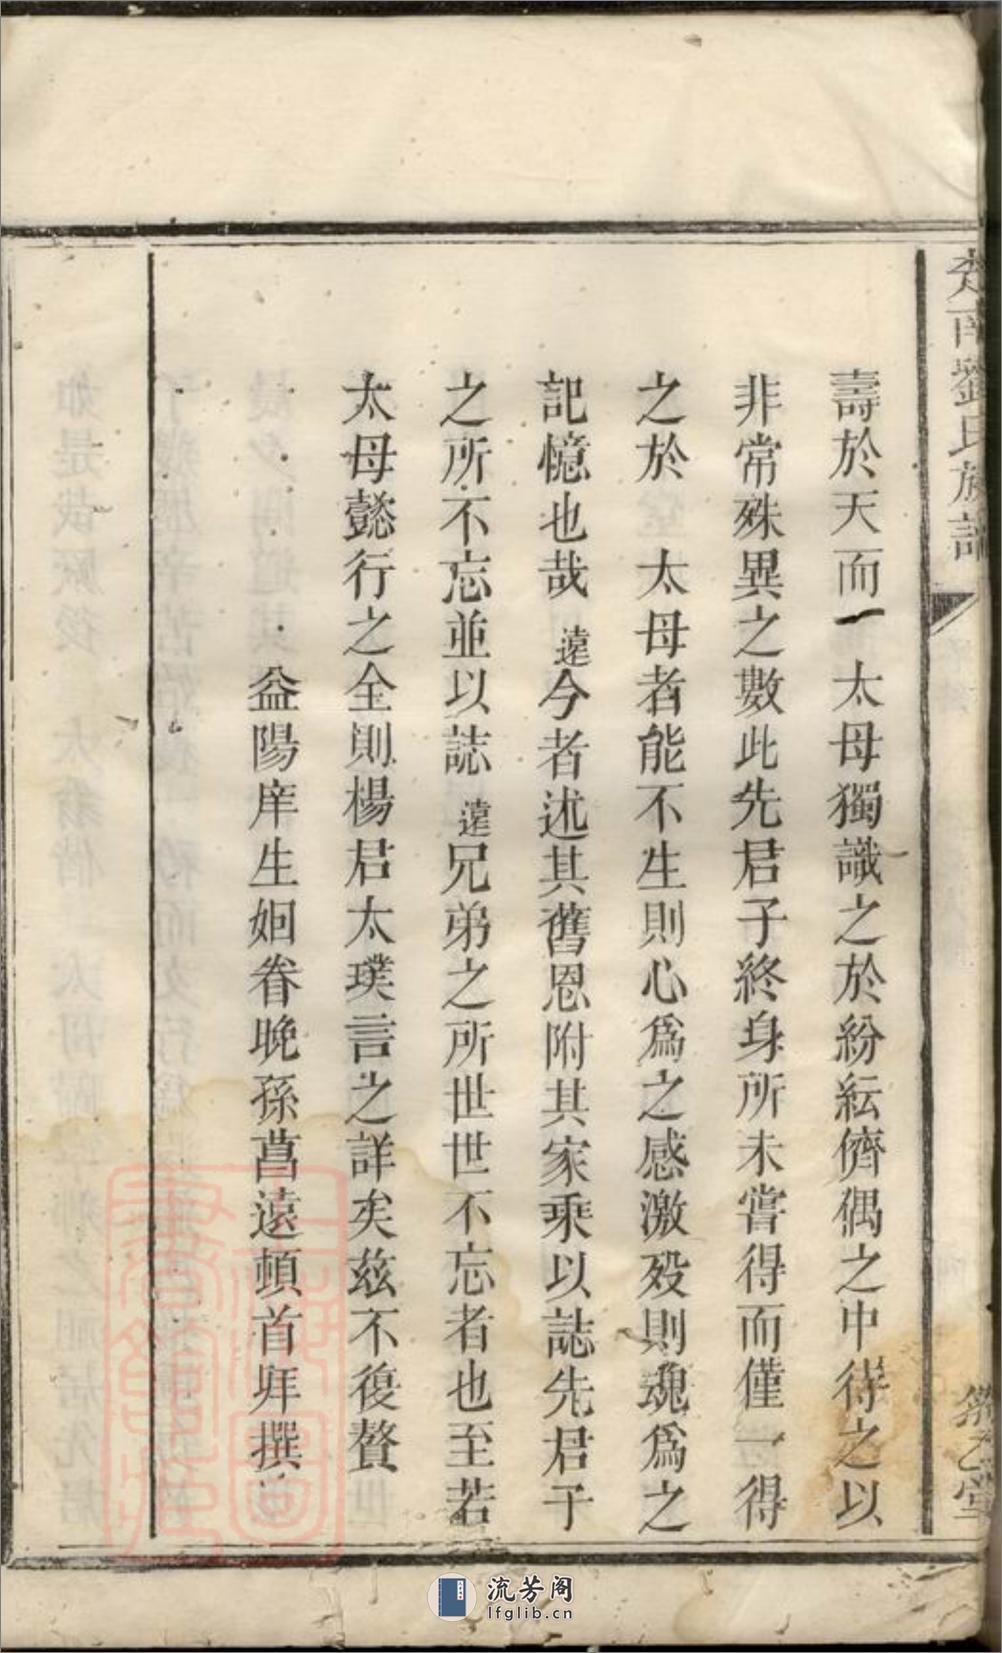 楚南劉氏族譜
壽於天而一　太母獨識之於紛紜儕偶之中待之以
非常殊異之數此先君子終身所未嘗得而僅一得
之於　太母者能不生則心爲之感激歿則魂爲之
記憶也哉遠今者述其舊恩附其家乘以誌先君子
之所不忘並以誌遠兄弟之所世世不忘者也至若
太母懿行之全則楊君太璞言之詳矣茲不復贅
益陽庠生姻眷晚孫菖遠頓首拜撰
乙堂
流芳阁
lfglib.cn